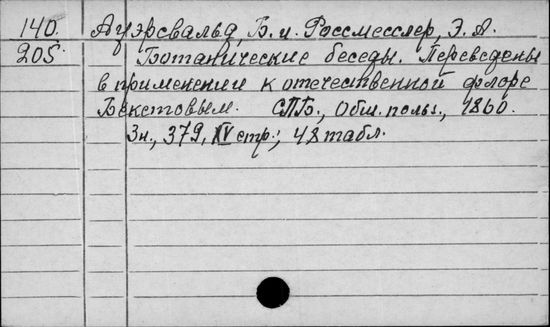 140. Ауэрсвальд, Б. и. Россмесслер, Э. А.
205. Ботанические беседы. Переведены
в применении к отечественной флоре
Бекетовым. СПБ., Общ. польз., 1860.
3н., 379, XV стр.; 48 табл.